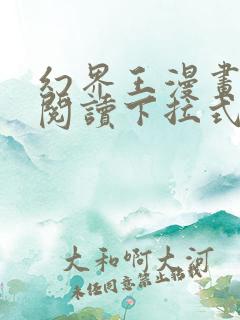 幻界王漫畫
閱讀下拉式
大和啊大河
未經同意禁止轉載